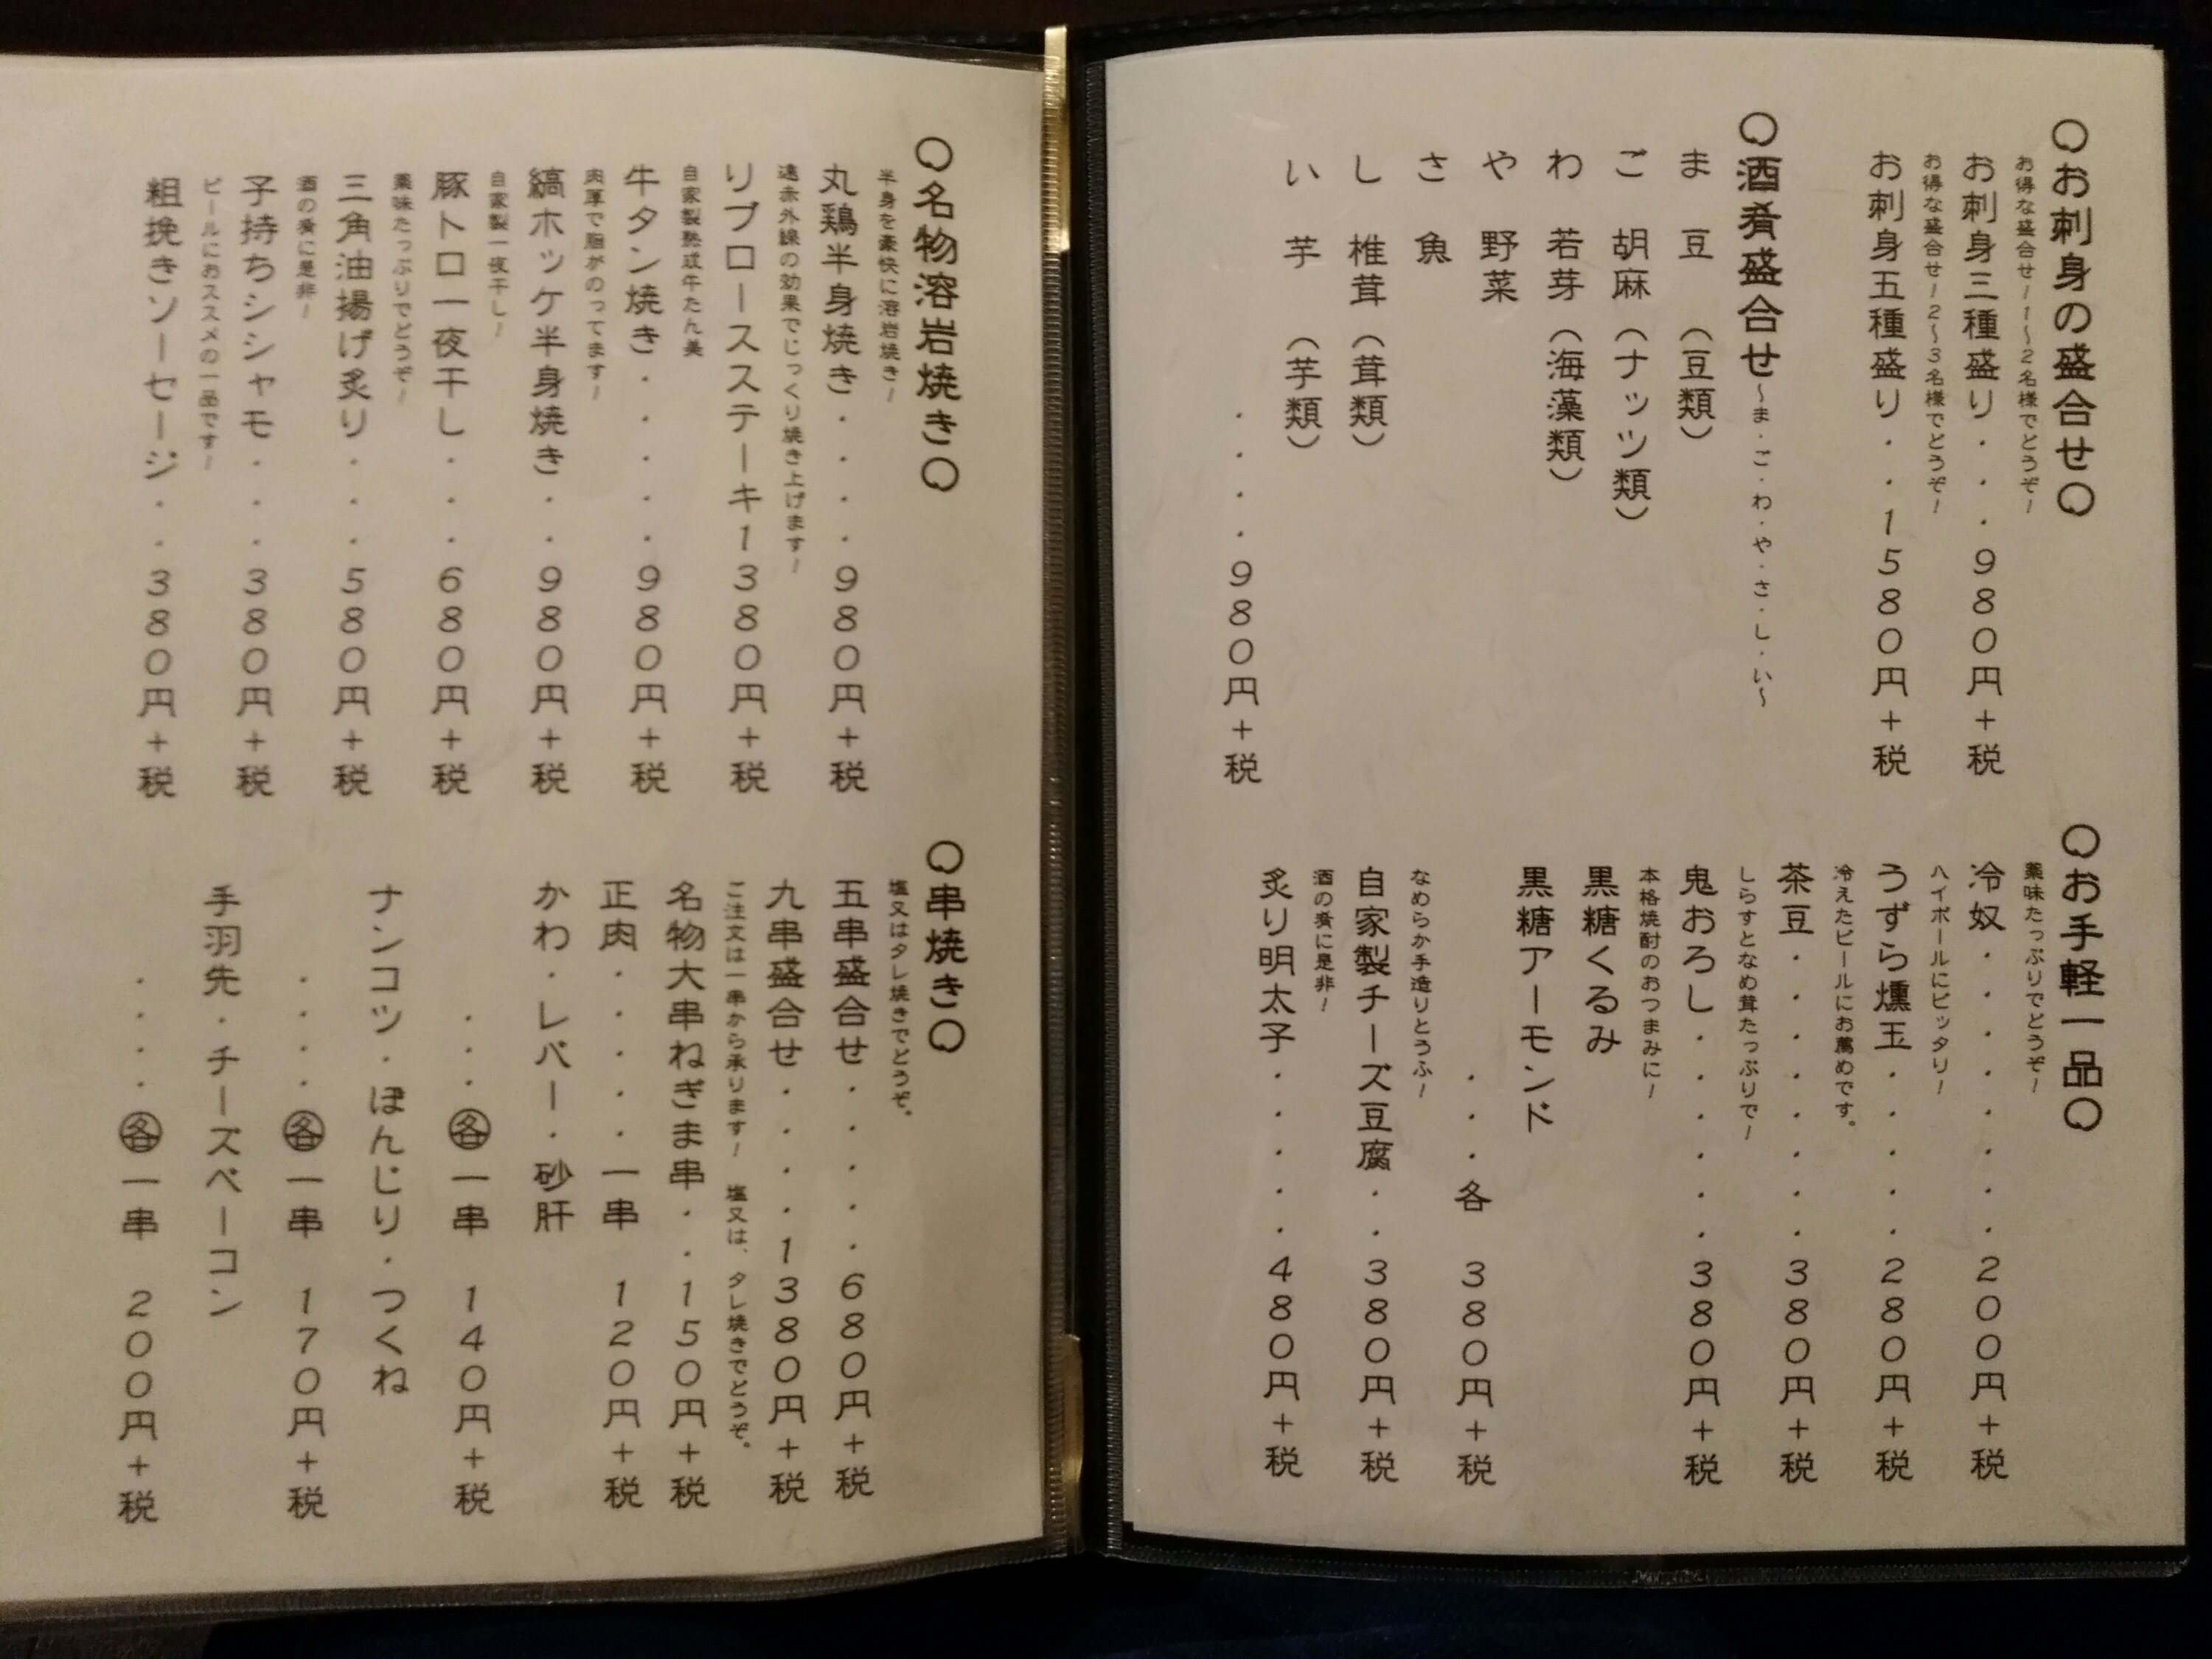 〇お刺身の盛合せ〇
お得な盛合せ！1～2名様でどうぞ！
お刺身三種盛り・・・980円+税
お得な盛合せ！2～3名様でどうぞ！
お刺身五種盛り・・1580円+税
〇酒肴盛合せ～ま・ご・わ・や・さ・し・い～
ま 豆 （豆類）
ご 胡麻（ナッツ類）
わ 若芽（海藻類）
や 野菜
さ 魚
し 椎茸（茸類）
い 芋 （芋類）
・・・・980円+税
〇お手軽一品〇
薬味たっぷりでどうぞ！
冷奴・・・・・・・・200円+税
ハイボールにピッタリ！
うずら燻玉・・・・・280円+税
冷えたビールにお薦めです。
茶豆・・・・・・・・380円+税
しらすとなめ茸たっぷりで！
鬼おろし・・・・・・380円+税
本格焼酎のおつまみに！
黒糖くるみ
黒糖アーモンド
・・・各 380円+税
なめらか手造りとうふ！
自家製チーズ豆腐・・380円+税
酒の肴に是非！
炙り明太子・・・・・480円+税
〇名物溶岩焼き〇
半身を豪快に溶岩焼き！
丸鶏半身焼き・・・・980円+税
遠赤外線の効果でじっくり焼き上げます！
リブロースステーキ1380円+税
自家製熟成牛たん美
牛タン焼き・・・・・980円+税
肉厚で脂がのってます！
縞ホッケ半身焼き・・980円+税
自家製一夜干し！
豚トロ一夜干し・・・680円+税
薬味たっぷりでどうぞ！
三角油揚げ炙り・・・580円+税
酒の肴に是非！
子持ちシシャモ・・・380円+税
ビールにおススメの一品です！
粗挽きソーセージ・・380円+税
〇串焼き〇
塩又はタレ焼きでどうぞ。
五串盛合せ・・・・・680円+税
九串盛合せ・・・・1380円+税
ご注文は一串から承ります！ 塩又は、タレ焼きでどうぞ。
名物大串ねぎま串・・150円+税
正肉・・・・・一串 120円+税
かわ・レバー・砂肝
・・・㊎一串 140円+税
ナンコツ・ぼんじり・つくね
・・・・各一串 170円+税
手羽先・チーズベーコン
・・・・各一串 200円+税